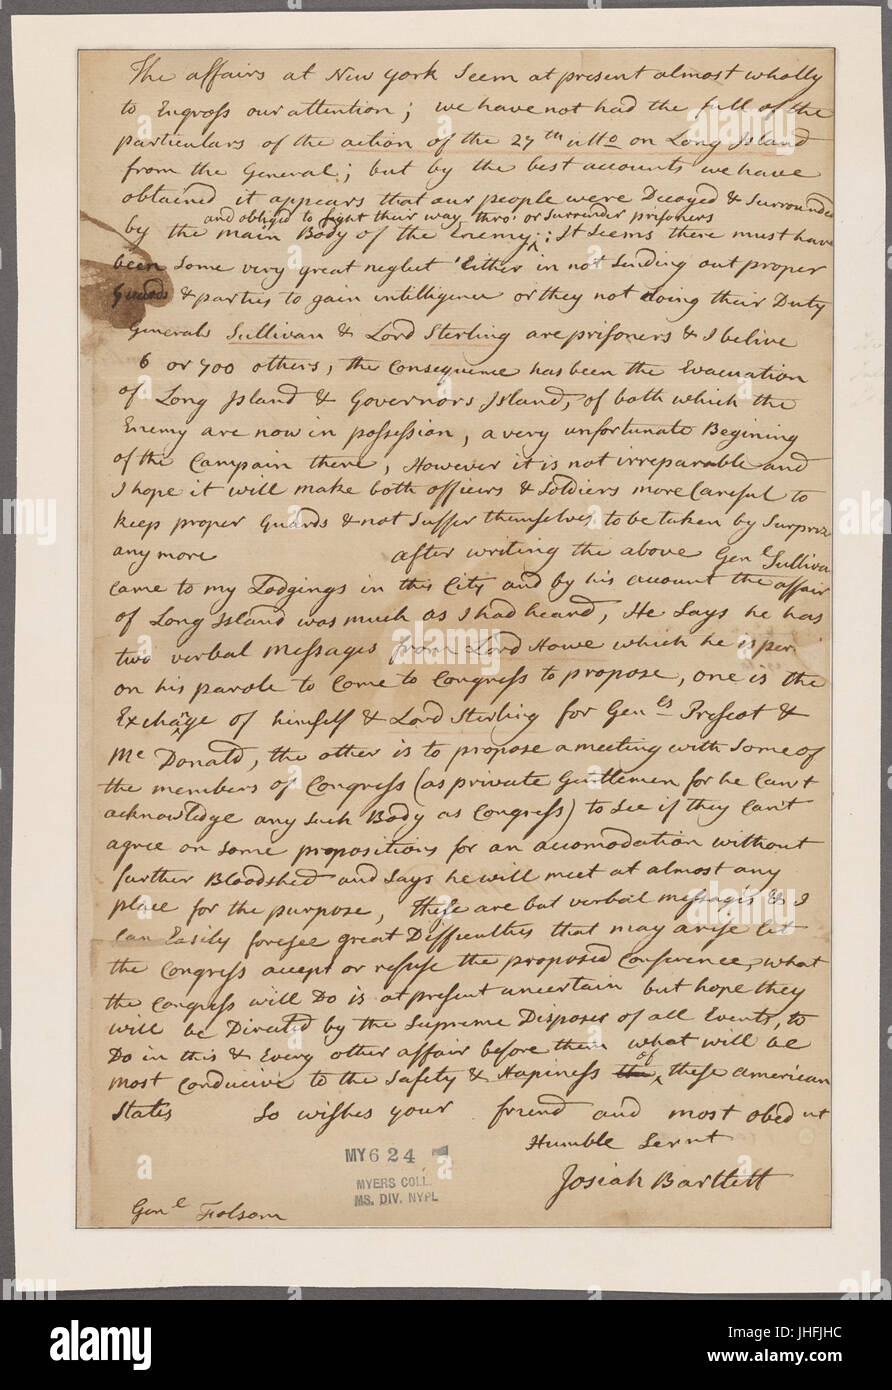 The affairs at New york Seem at present almost wholly
to Engross our attention; we have not had the full of the
particulars of the action of the 27th ulto on Long Island
from the General; but by the best accounts we have
obtained it appears that our people were Decoyed & Surrounded
and obliged to fight their way thro' or Surrender prisoners
by the main Body of the Enemy; ^: It Seems there must have
been Some very great neglect Either in not Sending out proper
Guards & parties to gain intelligence or they not doing their Duty
Generals Sullivan & Lord Sterling are prisoners & I belive
6 or 700 others, the Consequence has been the Evacuation
of Long Island & Governors Island, of both which the
Enemy are now in possession, a very unfortunate Begining
of the Campain there, However it is not irreparable and
I hope it will make both officers & Soldiers more Careful to
keep proper Guards & not Suffer themselves to be taken by Surprize
any more after writing the above Genl Sullivan
Came to my Lodgings in this City and by his account the affair
of Long Island was much as I had heard, He Says he has
two verbal messages from Lord Howe which he is per:
on his parole to Come to Congress to propose, one is the
Exchange of himself & Lord Sterling for Genls Prescot &
Mc Donald, the other is to propose a meeting with Some of
the members of Congress (as private Gentlemen for he Can't
acknowledge any Such Body as Congress) to See if they Can't
agree on Some propositions for an accomodation without
further Bloodshed and Says he will meet at almost any
place for the purpose, These are but verbal messages & I
Can Easily foresee great Difficulties that may arise let
the Congress accept or refuse the proposed Conference, what
the Congress will Do is at present uncertain but hope they
will be Directed by the Supreme Disposer of all Events, to
Do in this & Every other affair before them what will be
most Conducive to the Safety & Hapiness the ^of these american
States So wishes your friend and most obedt
Humble Servt
Josiah Bartlett
MY 624
MYERS COLL.
MS. DIV. NYPL
Genl Folsom
alamy
alamy
alamy
Image ID: JHFJHC
www.alamy.com